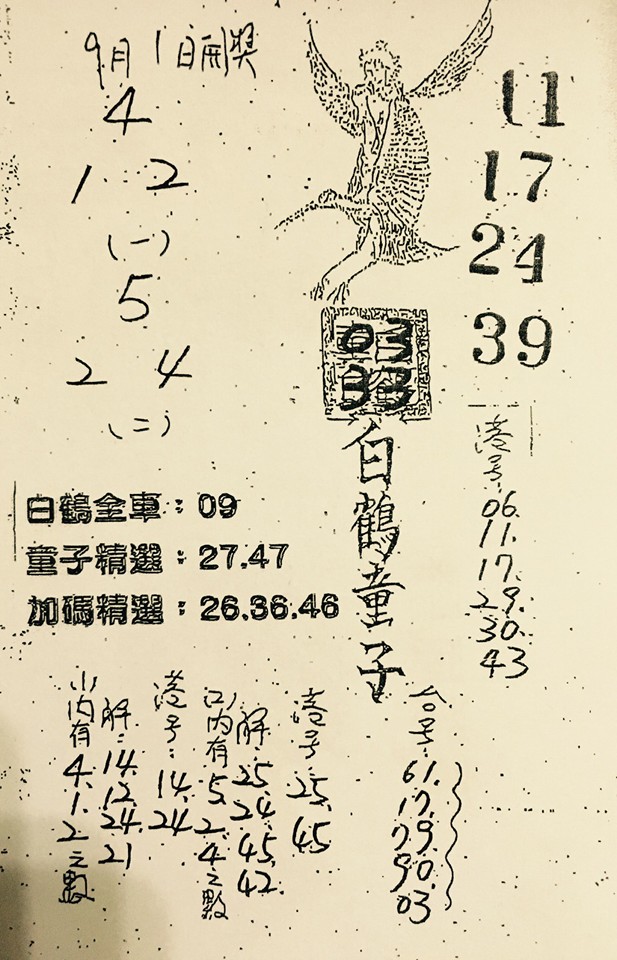 9月1日開獎
4
1 2
(一)
5
2 4
(二)
11
17
24
39
03
33
白鶴童子
港号:
06.
11.
17.
29.
30.
43
白鶴金車:09
童子精選:27.47
加碼精選:26.36.46
台号:
61.
17.
79.
90.
03
港号:
25.
45
解:
25.
24.
45.
42.
以內有
5.
2.
4之數
港号:
14.
24
解:
14.
12.
24.
21
以內有
4.
1.
2之數